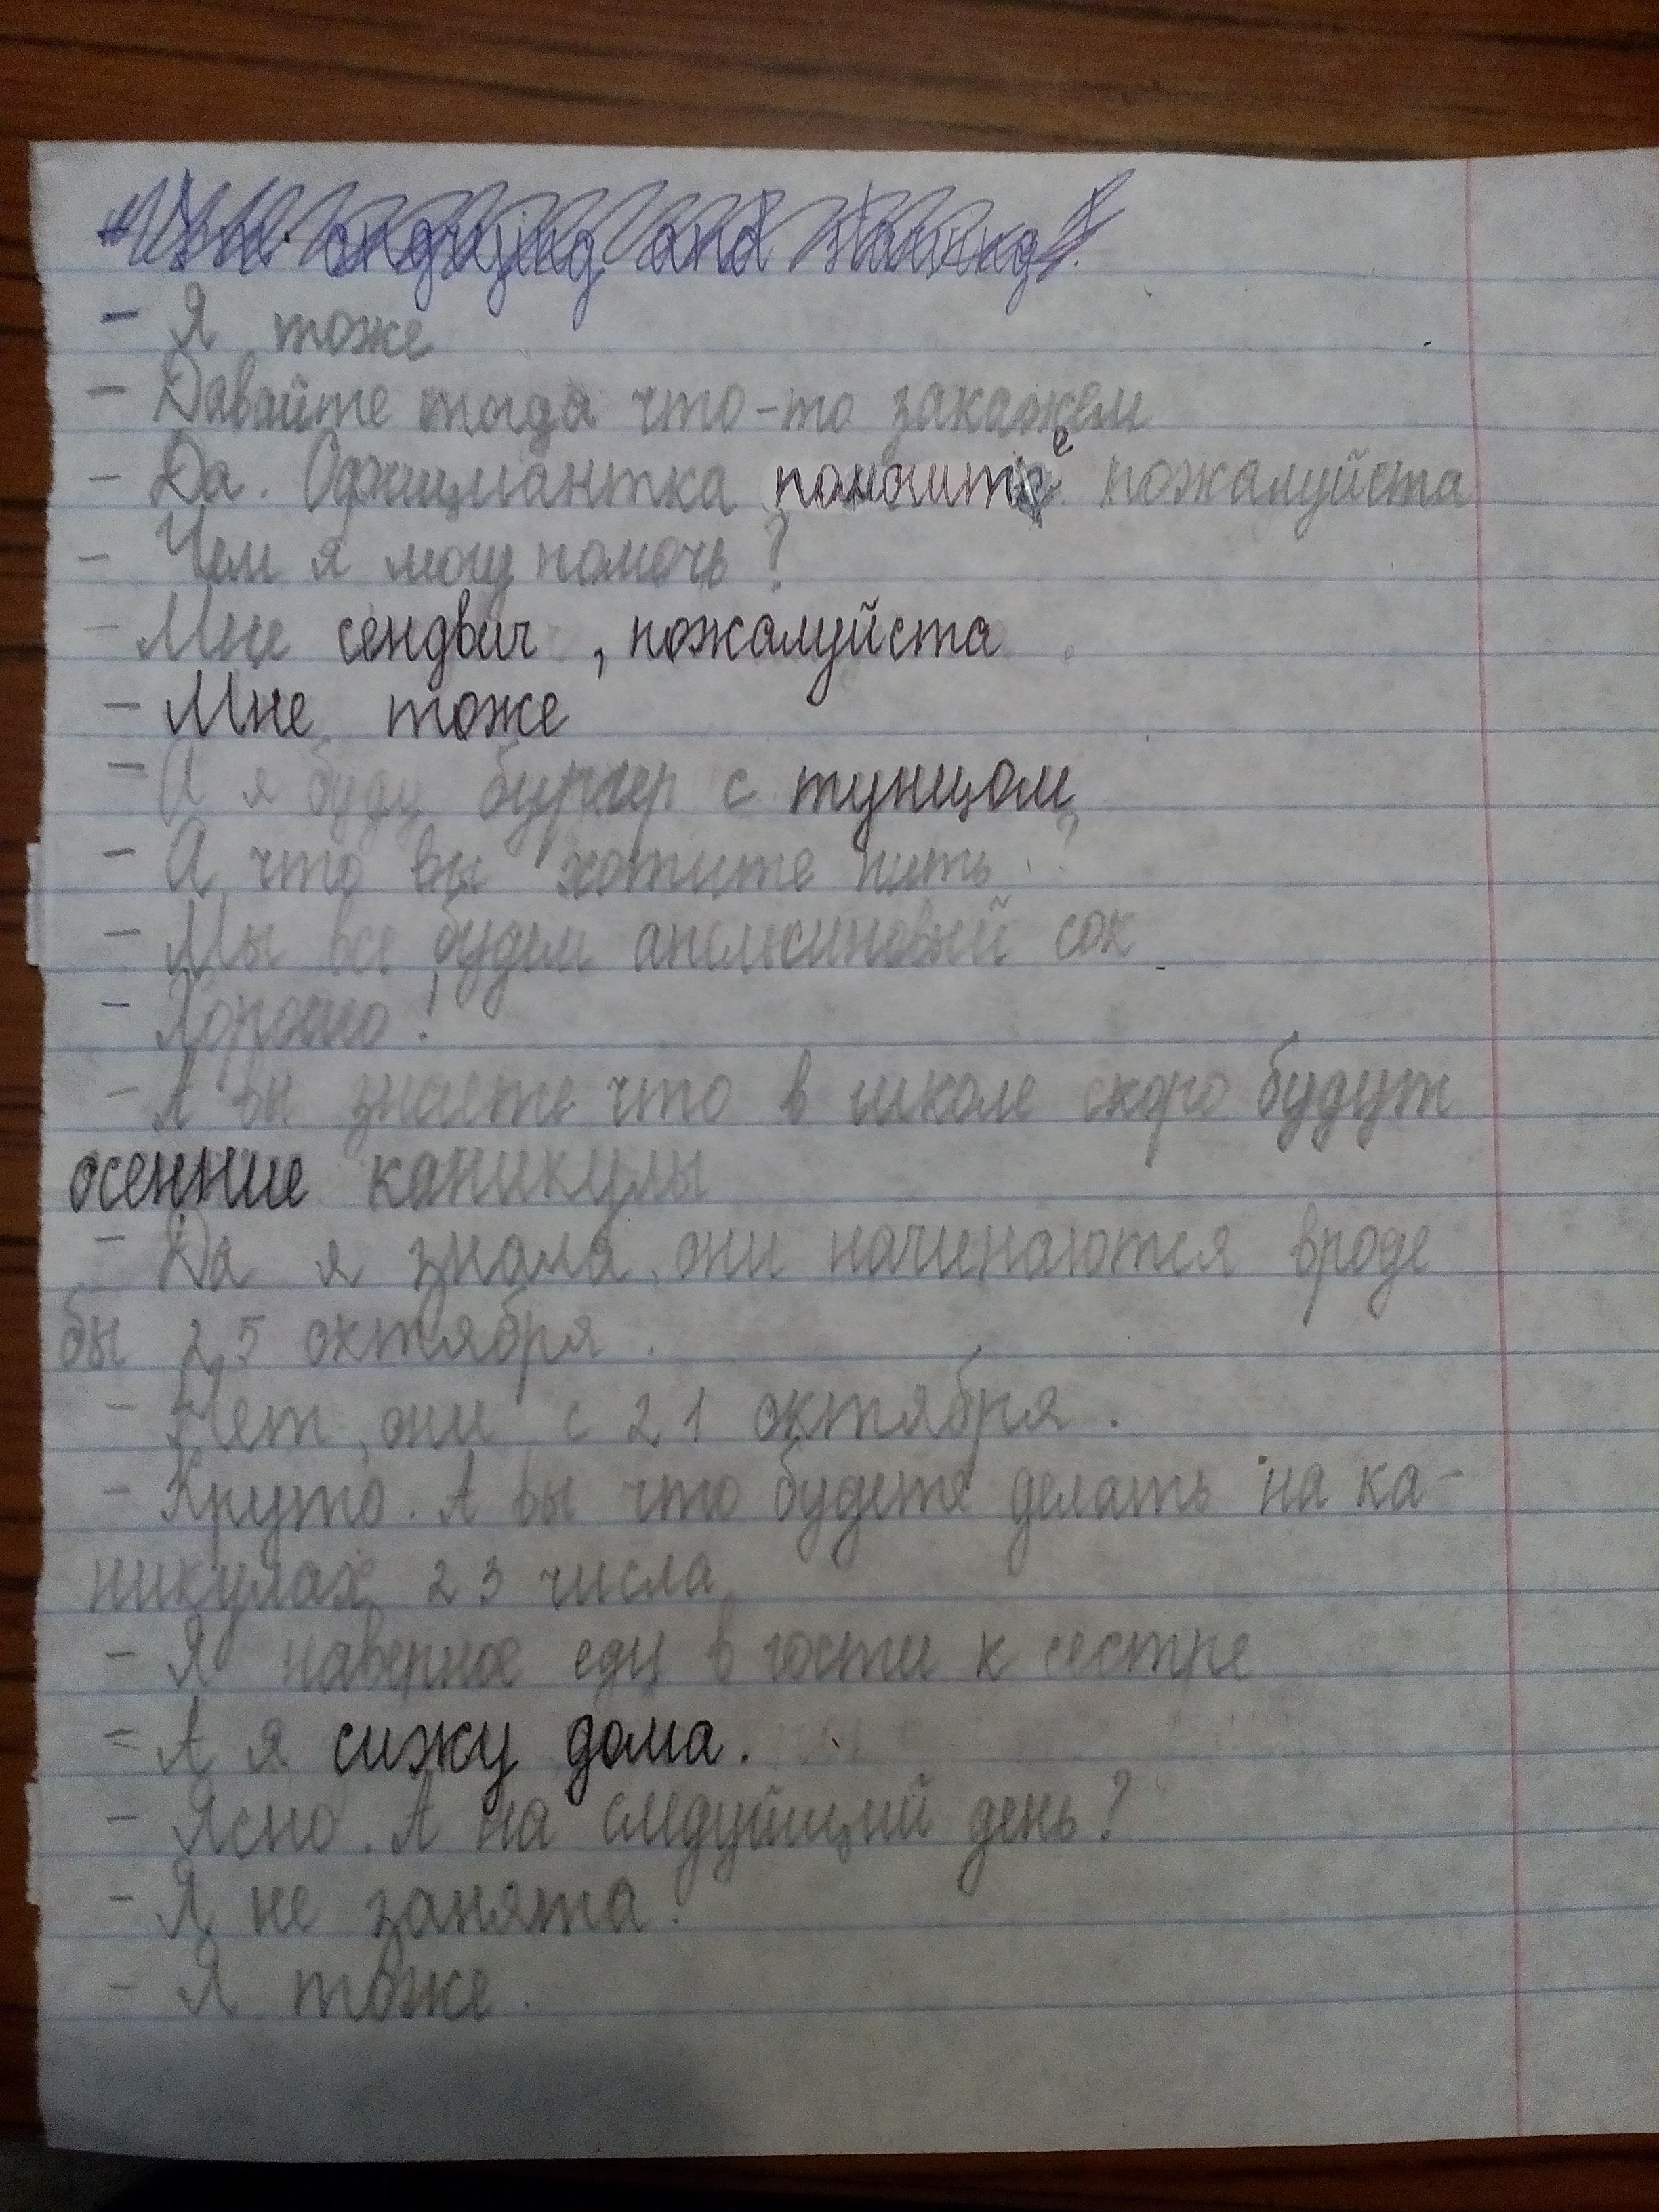 - Я тоже
- Давайте тогда что-то закажем
- Да. Официантка помогите пожалуйста
- Чем я могу помочь?
- Мне сендвич, пожалуйста
- Мне тоже
- А я буду бургер с тунцом
- А что вы хотите пить?
- Мы все будем апельсиновый сок
- Хорошо!
- А вы знаете что в школе скоро будут
осенние каникулы
- Да я знала, они начинаются вроде
бы 25 октября.
- Нет, они с 21 октября.
- Круто. А вы что будете делать на ка-
никулах 23 числа
- Я наверное еду в гости к сестре
= А я сижу дома.
- Ясно. А на следуйщий день?
- Я не занята.
- Я тоже.